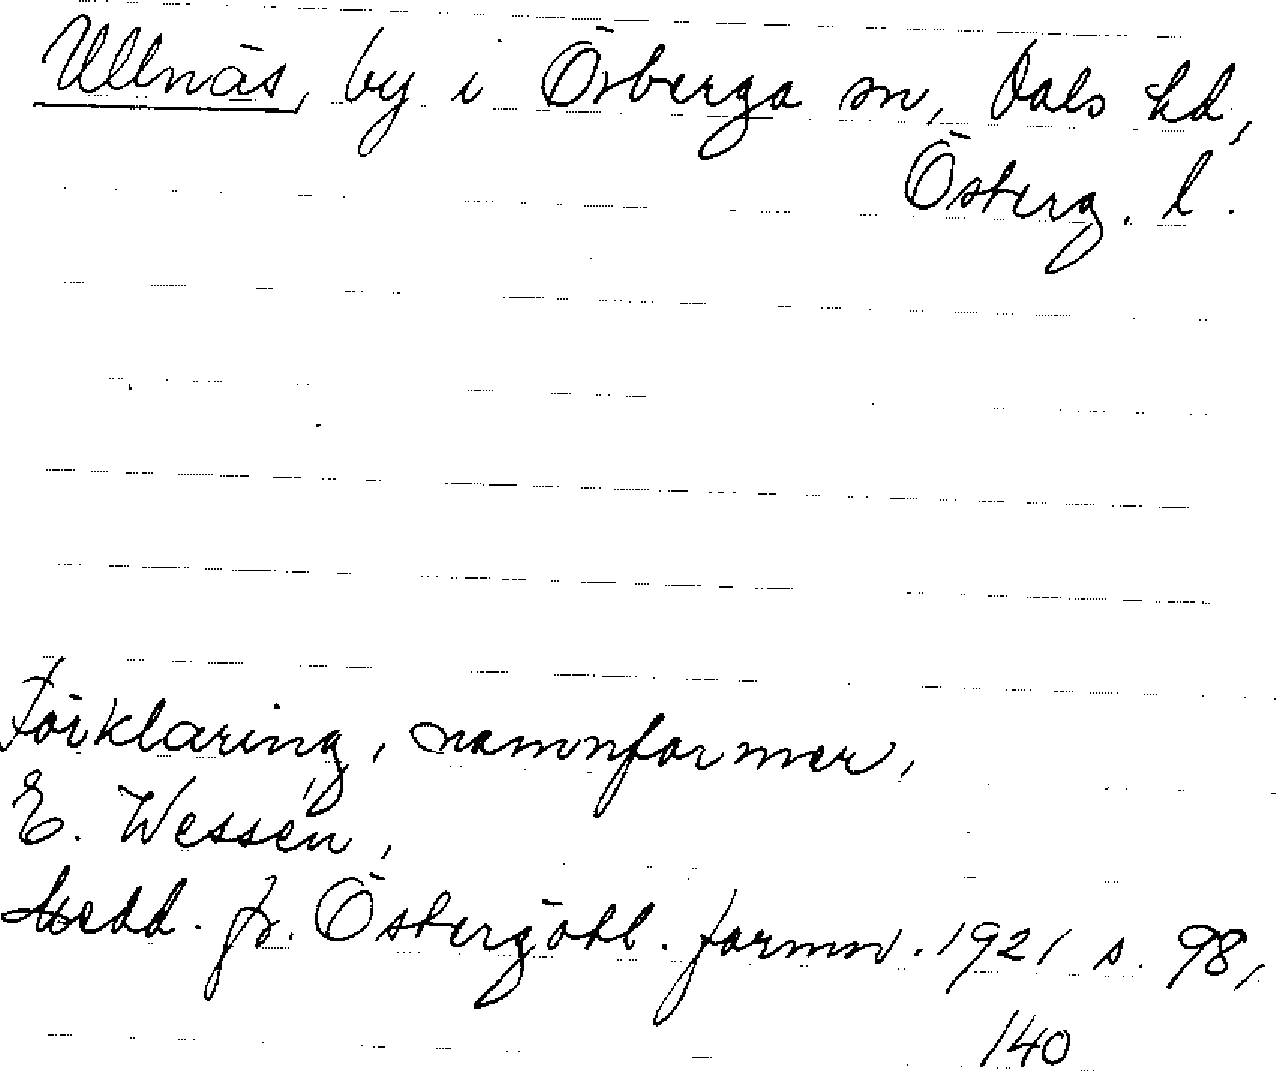 Ullnäs, by i Örberga sn, Dals hd,
Österg. l.
Förklaring, namnformer,
E. Wessén,
Medd. fr. Östergötl. fornmn. 1921 s. 98,
140